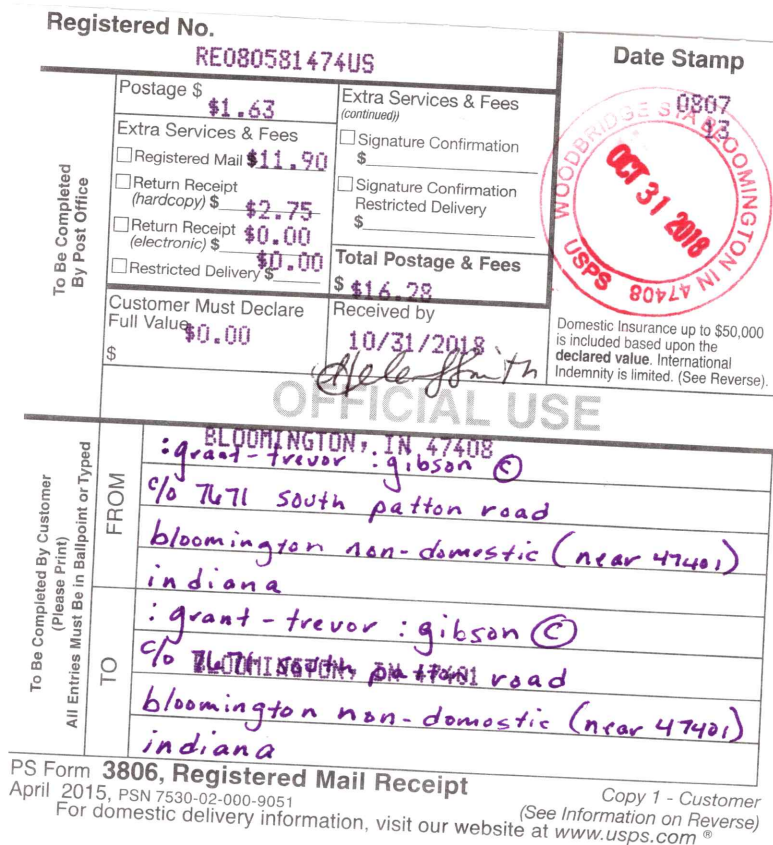 Registered No.
RE080581474US
Date Stamp
0807
13
WOODBRIDGE STA BLOOMINGTON IN 47408
OCT 31 2018
USPS
To Be Completed
By Post Office
Postage $
$1.63
Extra Services & Fees
Registered Mail $11.90
Return Receipt
(hardcopy) $ $2.75
Return Receipt
(electronic) $ $0.00
Restricted Delivery $ $0.00
Extra Services & Fees
(continued))
Signature Confirmation
$
Signature Confirmation
Restricted Delivery
$
Total Postage & Fees
$ $16.28
Customer Must Declare
Full Value $0.00
$
Received by
10/31/2018
Helen Smith
Domestic Insurance up to $50,000
is included based upon the
declared value. International
Indemnity is limited. (See Reverse).
OFFICIAL USE
To Be Completed By Customer
(Please Print)
All Entries Must Be in Ballpoint or Typed
FROM
BLOOMINGTON, IN 47408
:grant-trevor :gibson ©
c/o 7671 south patton road
bloomington non-domestic (near 47401)
indiana
TO
:grant-trevor :gibson ©
c/o 7671 south patton road
BLOOMINGTON, IN 47401
bloomington non-domestic (near 47401)
indiana
PS Form 3806, Registered Mail Receipt
April 2015, PSN 7530-02-000-9051
Copy 1 - Customer
(See Information on Reverse)
For domestic delivery information, visit our website at www.usps.com ®